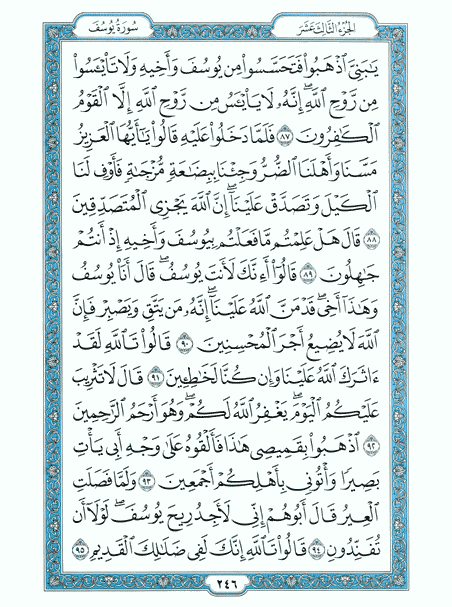 سُورَةُ يُوسُفَ
الجُزءُ الثَّالِثَ عَشَرَ
يَٰبَنِىَّ ٱذْهَبُوا۟ فَتَحَسَّسُوا۟ مِن يُوسُفَ وَأَخِيهِ وَلَا تَا۟يْـَٔسُوا۟
مِن رَّوْحِ ٱللَّهِ ۖ إِنَّهُۥ لَا يَا۟يْـَٔسُ مِن رَّوْحِ ٱللَّهِ إِلَّا ٱلْقَوْمُ
ٱلْكَٰفِرُونَ ٨٧ فَلَمَّا دَخَلُوا۟ عَلَيْهِ قَالُوا۟ يَٰٓأَيُّهَا ٱلْعَزِيزُ
مَسَّنَا وَأَهْلَنَا ٱلضُّرُّ وَجِئْنَا بِبِضَٰعَةٍ مُّزْجَىٰةٍ فَأَوْفِ لَنَا
ٱلْكَيْلَ وَتَصَدَّقْ عَلَيْنَآ ۖ إِنَّ ٱللَّهَ يَجْزِى ٱلْمُتَصَدِّقِينَ
٨٨ قَالَ هَلْ عَلِمْتُم مَّا فَعَلْتُم بِيُوسُفَ وَأَخِيهِ إِذْ أَنتُمْ
جَٰهِلُونَ ٨٩ قَالُوٓا۟ أَءِنَّكَ لَأَنتَ يُوسُفُ ۖ قَالَ أَنَا۠ يُوسُفُ
وَهَٰذَآ أَخِى ۖ قَدْ مَنَّ ٱللَّهُ عَلَيْنَآ ۖ إِنَّهُۥ مَن يَتَّقِ وَيَصْبِرْ فَإِنَّ
ٱللَّهَ لَا يُضِيعُ أَجْرَ ٱلْمُحْسِنِينَ ٩٠ قَالُوا۟ تَٱللَّهِ لَقَدْ
ءَاثَرَكَ ٱللَّهُ عَلَيْنَا وَإِن كُنَّا لَخَٰطِـِٔينَ ٩١ قَالَ لَا تَثْرِيبَ
عَلَيْكُمُ ٱلْيَوْمَ ۖ يَغْفِرُ ٱللَّهُ لَكُمْ ۖ وَهُوَ أَرْحَمُ ٱلرَّٰحِمِينَ
٩٢ ٱذْهَبُوا۟ بِقَمِيصِى هَٰذَا فَأَلْقُوهُ عَلَىٰ وَجْهِ أَبِى يَأْتِ
بَصِيرًا وَأْتُونِى بِأَهْلِكُمْ أَجْمَعِينَ ٩٣ وَلَمَّا فَصَلَتِ
ٱلْعِيرُ قَالَ أَبُوهُمْ إِنِّى لَأَجِدُ رِيحَ يُوسُفَ ۖ لَوْلَآ أَن
تُفَنِّدُونِ ٩٤ قَالُوا۟ تَٱللَّهِ إِنَّكَ لَفِى ضَلَٰلِكَ ٱلْقَدِيمِ ٩٥
٢٤٦